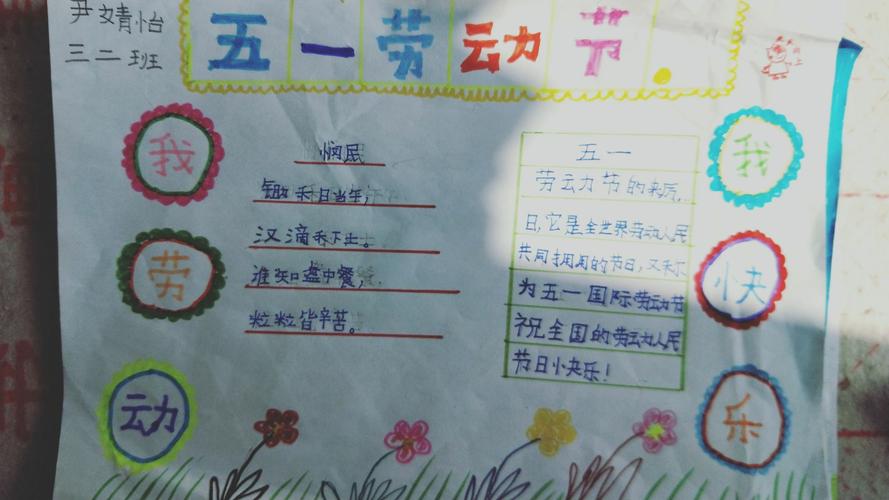 尹婧怡
三二班
五一劳动节
我
劳
动
悯民
锄禾日当午，
汉滴禾下土。
谁知盘中餐，
粒粒皆辛苦。
五一
劳动节的来历，
日，它是全世界劳动人民
共同拥用的节日，又称
为五一国际劳动节
祝全国的劳动人民
节日小央乐！
我
快
乐